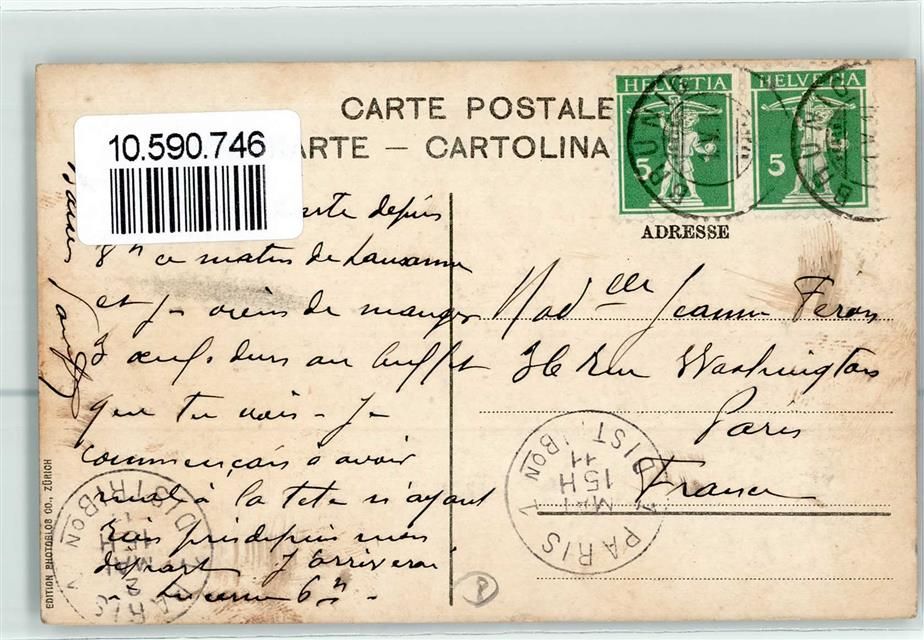 CARTE POSTALE
ARTE – CARTOLINA
10.590.746
HELVETIA
5
HELVETIA
5
BRUNIG
BRUNIG
ADRESSE
depuis
8h ce matin de Lausanne
et je viens de manger
3 œufs durs au buffet
que tu vois – Je
commençais à avoir
mal à la tete n'ayant
rien pris depuis mon
depart J'arriverai
Lucerne 6h –
Madelle Jeanne Feron
36 Rue Washington
Paris
France
PARIS
DISTRIBON
15H
11
DISTRIBON
MAI
EDITION PHOTOGLOB CO., ZÜRICH